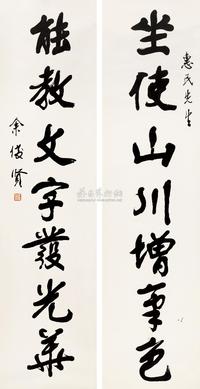 惠民先生
坐使山川增氣色
能教文字發光華
余俊賢